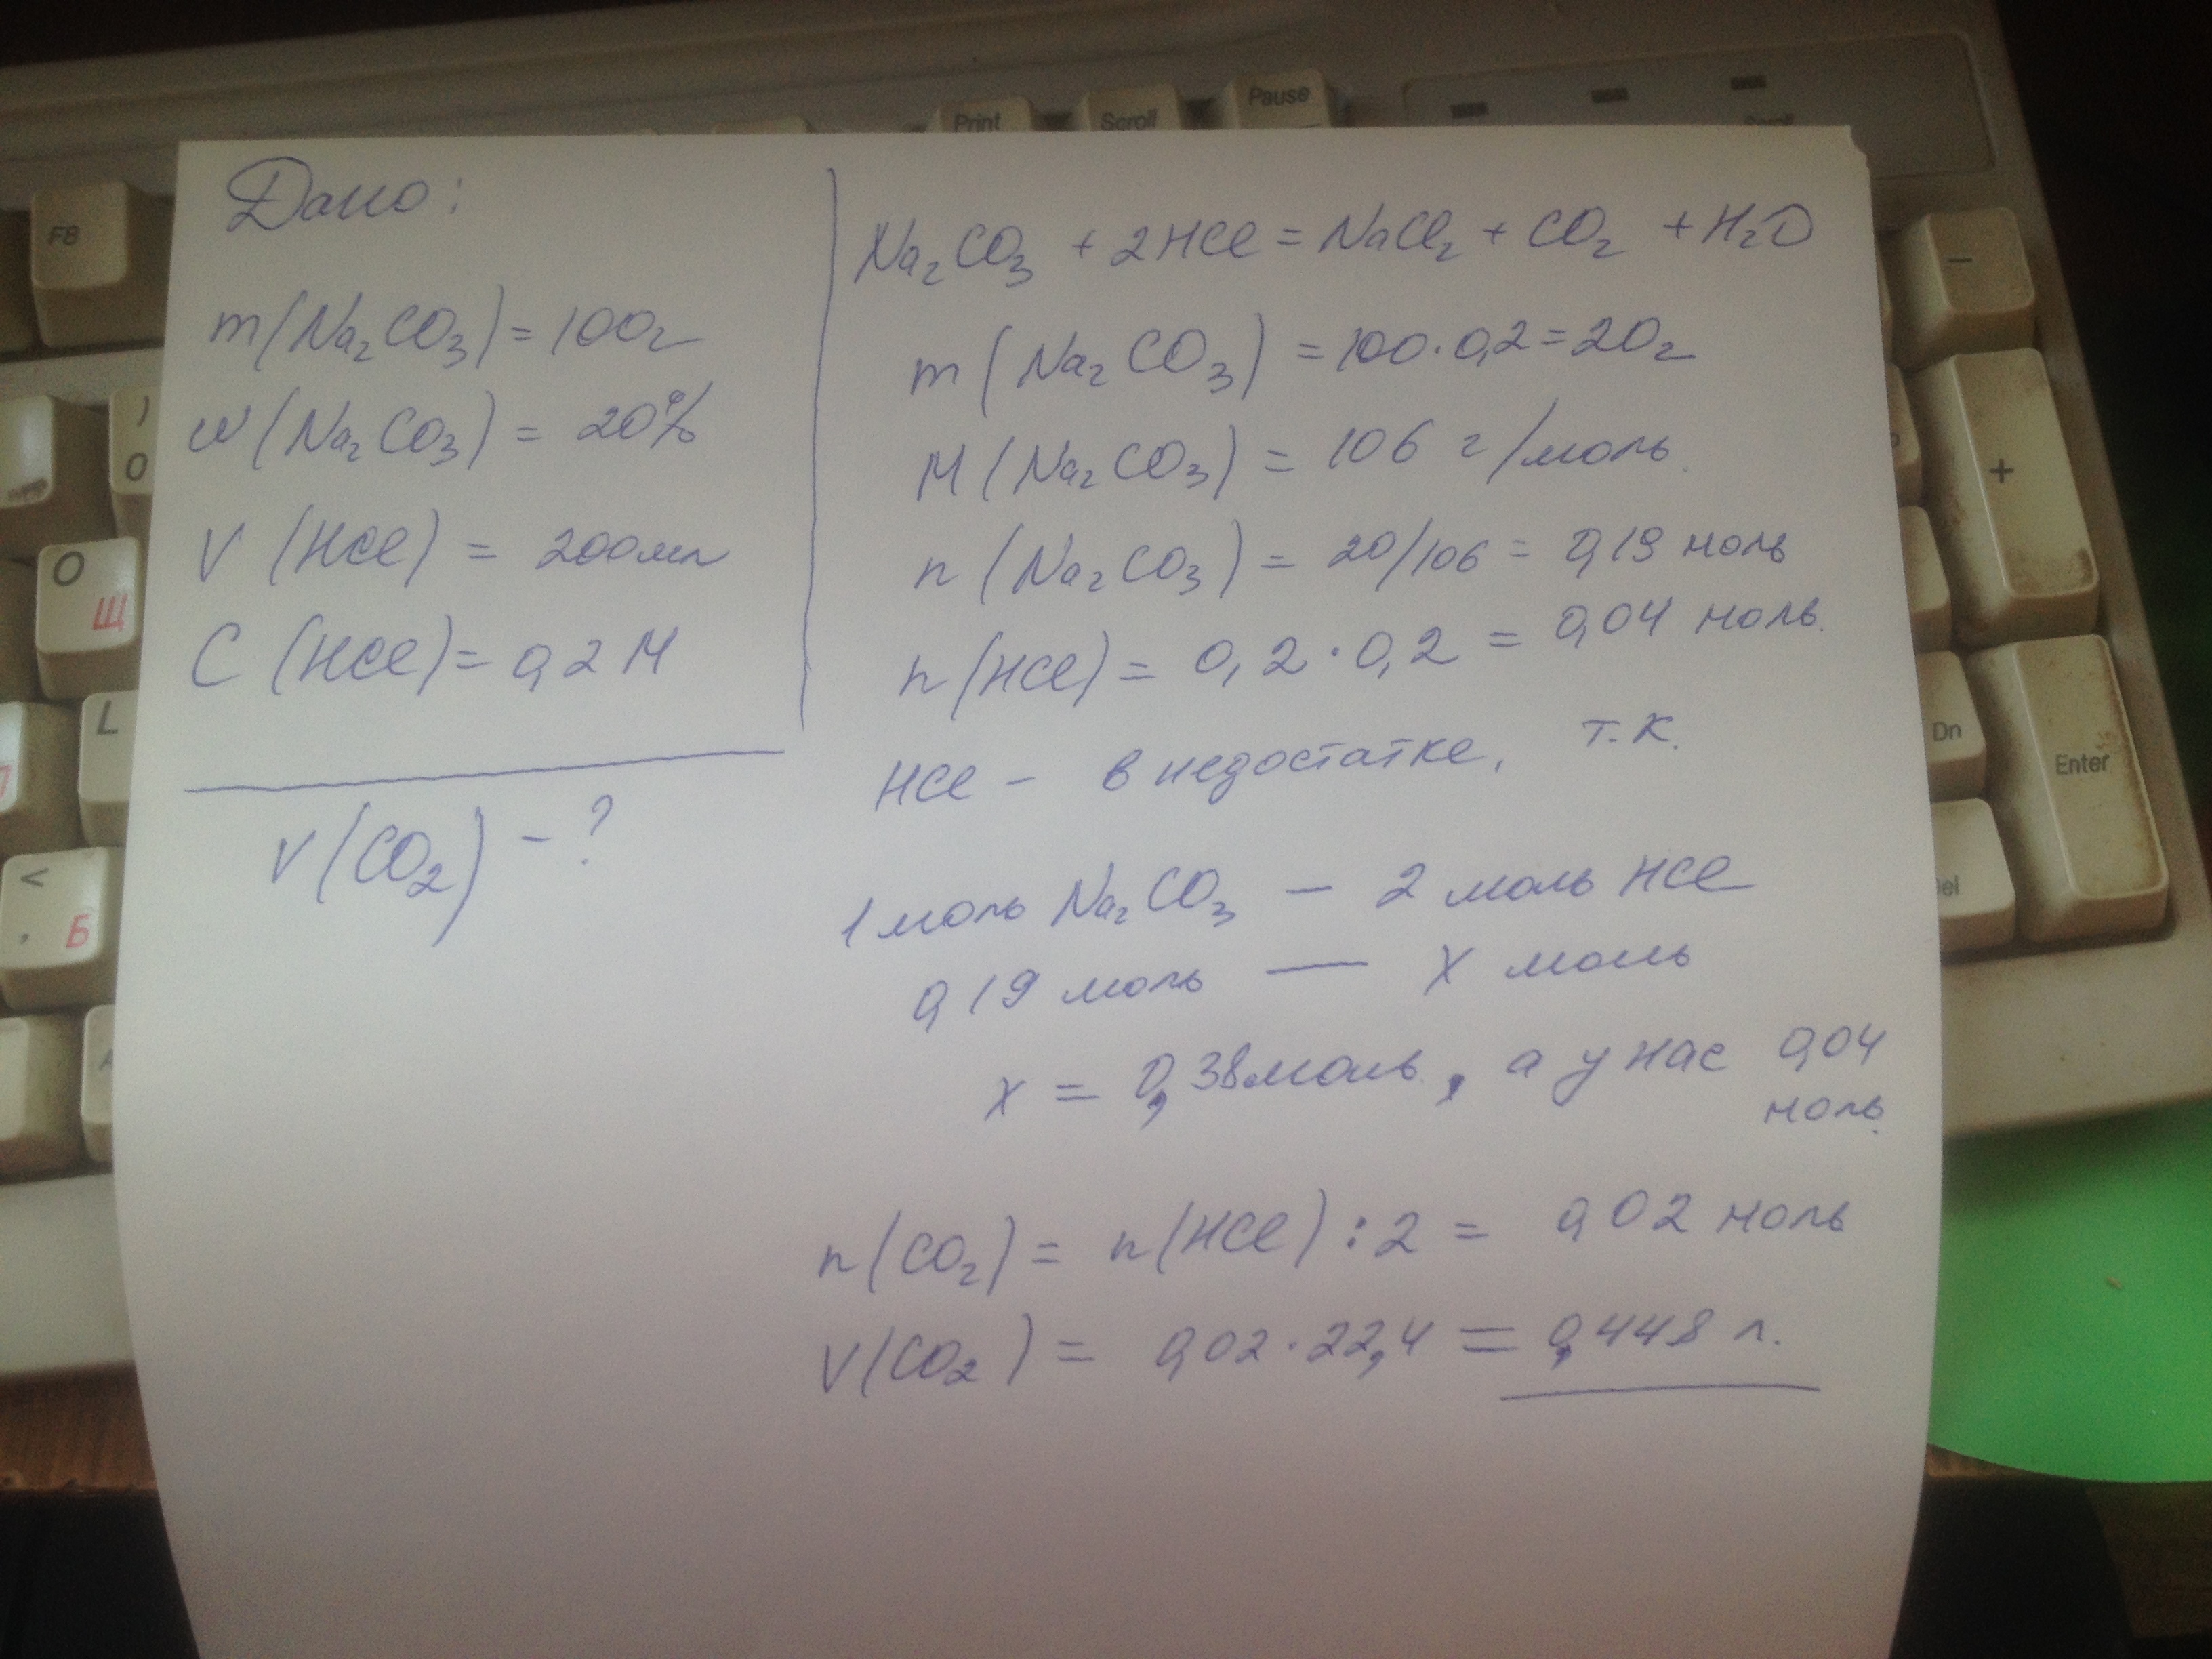 Print
Scroll
Pause
Scroll
F8
)
0
O
Щ
L
<
,
Б
−
+
Dn
Enter
Дано:
m(Na₂CO₃) = 100г
w(Na₂CO₃) = 20%
V (HCl) = 200мл
C (HCl) = 0,2 М
V(CO₂) - ?
Na₂CO₃ + 2HCl = NaCl₂ + CO₂ + H₂O
m(Na₂CO₃) = 100·0,2 = 20г
M(Na₂CO₃) = 106 г/моль.
n(Na₂CO₃) = 20/106 = 0,19 моль
n(HCl) = 0,2·0,2 = 0,04 моль.
HCl - в недостатке, т.к.
1 моль Na₂CO₃ — 2 моль HCl
0,19 моль — x моль
x = 0,38 моль, а у нас 0,04
моль.
n(CO₂) = n(HCl) : 2 = 0,02 моль
V(CO₂) = 0,02·22,4 = 0,448 л.